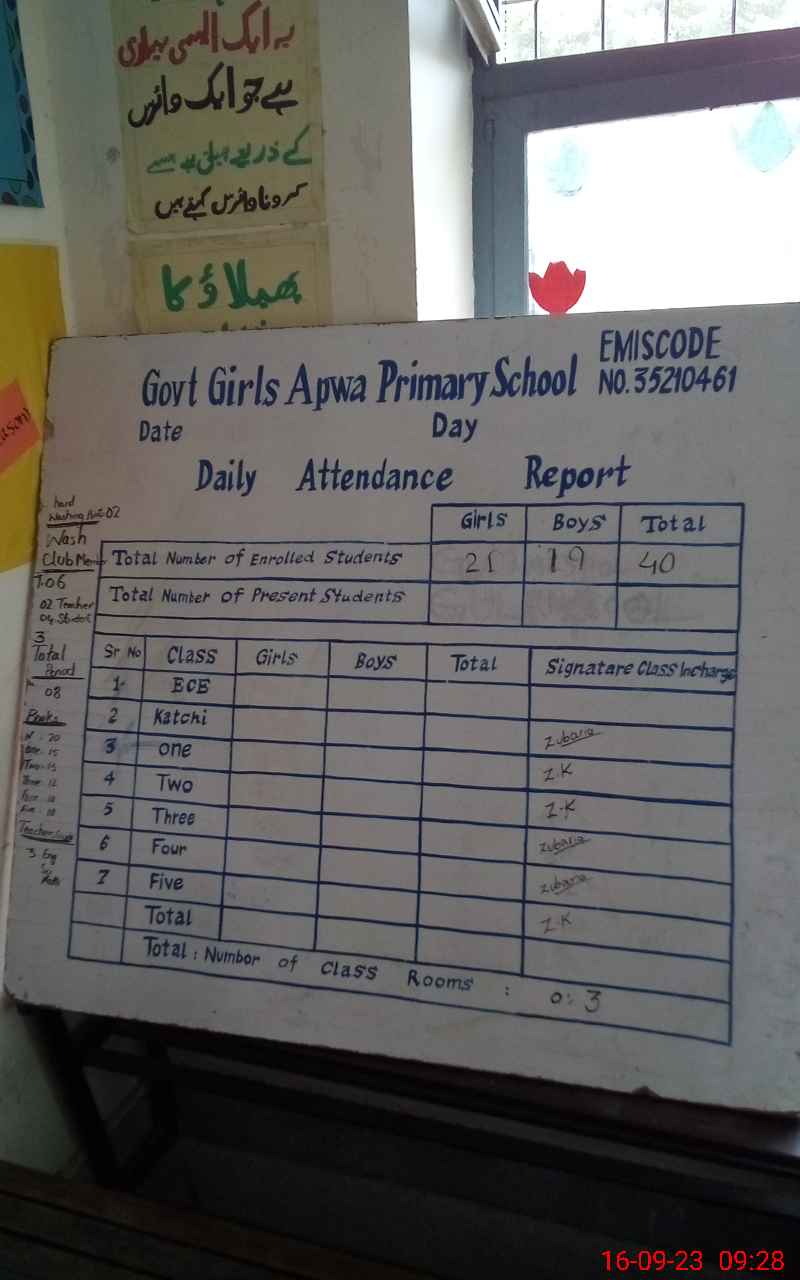 یہ ایک ایسی بیماری
ہے جو ایک وائرس
کے ذریعے پھیلتی ہے جسے
کرونا وائرس کہتے ہیں
پھیلاؤ کا
EMISCODE
Govt Girls Apwa Primary School NO. 35210461
Date Day
Daily Attendance Report
Girls Boys Total
Total Number of Enrolled Students 21 19 40
Total Number of Present Students
Sr No Class Girls Boys Total Signatare Class Incharge
1 ECE
2 Katchi Zubaria
3 one Z.K
4 Two Z-K
5 Three Zubaria
6 Four Zubaria
7 Five Z-K
Total
Total : Number of Class Rooms : 0:3
hand
Washing 02
Wash
Club Member
T.06
02 Teacher
04 Student
3
Total
Period
08
Books
N : 20
One : 15
Two : 15
Three : 12
Four : 10
Five : 10
Teacher
3 Eng
16-09-23 09:28